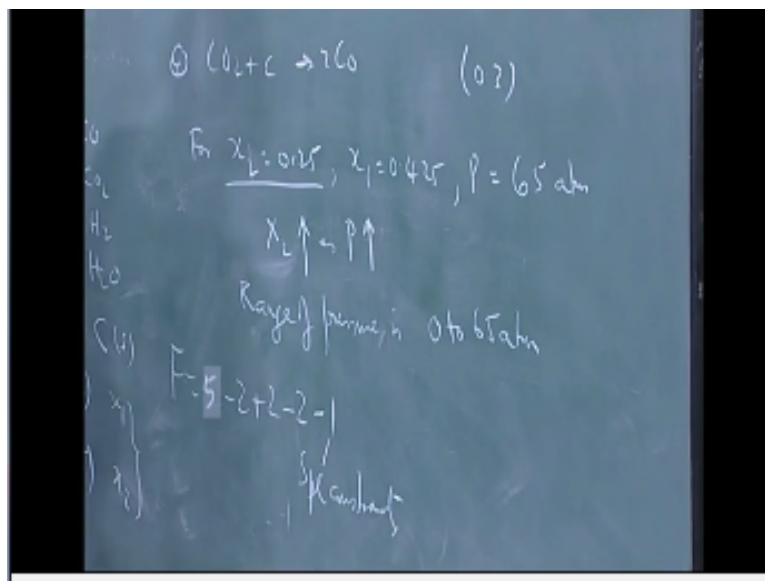 ② CO₂+C → 2CO (0?)
CO
CO₂
H₂
H₂O
C(s)
) x₁
) x₂
For x₂=0.25, x₁=0.425, P = 65 atm
x₂↑ as P↑
Range of pressure, is 0 to 65 atm
F=5-2+2-2-1
Spl constraint